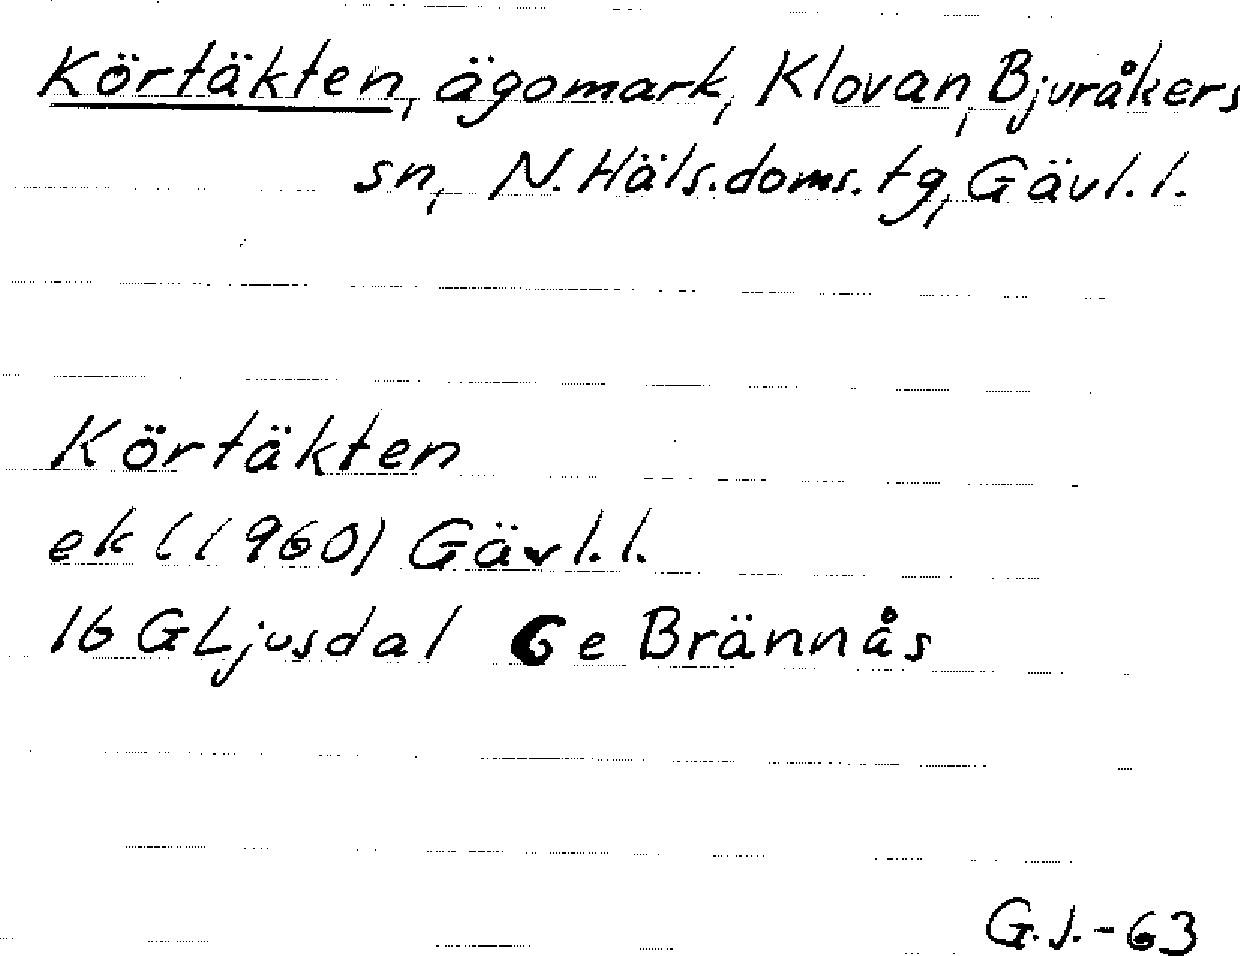 Körtäkten, ägomark, Klovan, Bjuråkers
sn, N. Häls. doms. tg, Gävl. l.
Körtäkten
ek (1960) Gävl. l.
16 G Ljusdal 6 e Brännås
G. J. - 63